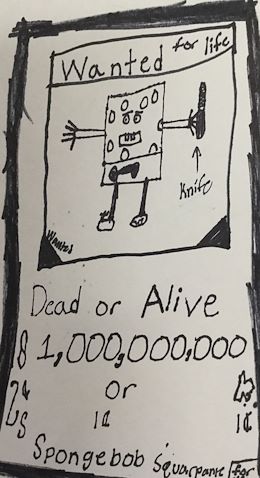 Wanted for life
Knife
Wanted
Dead or Alive
1,000,000,000
or
1¢ 1¢
Spongebob Squarpants for